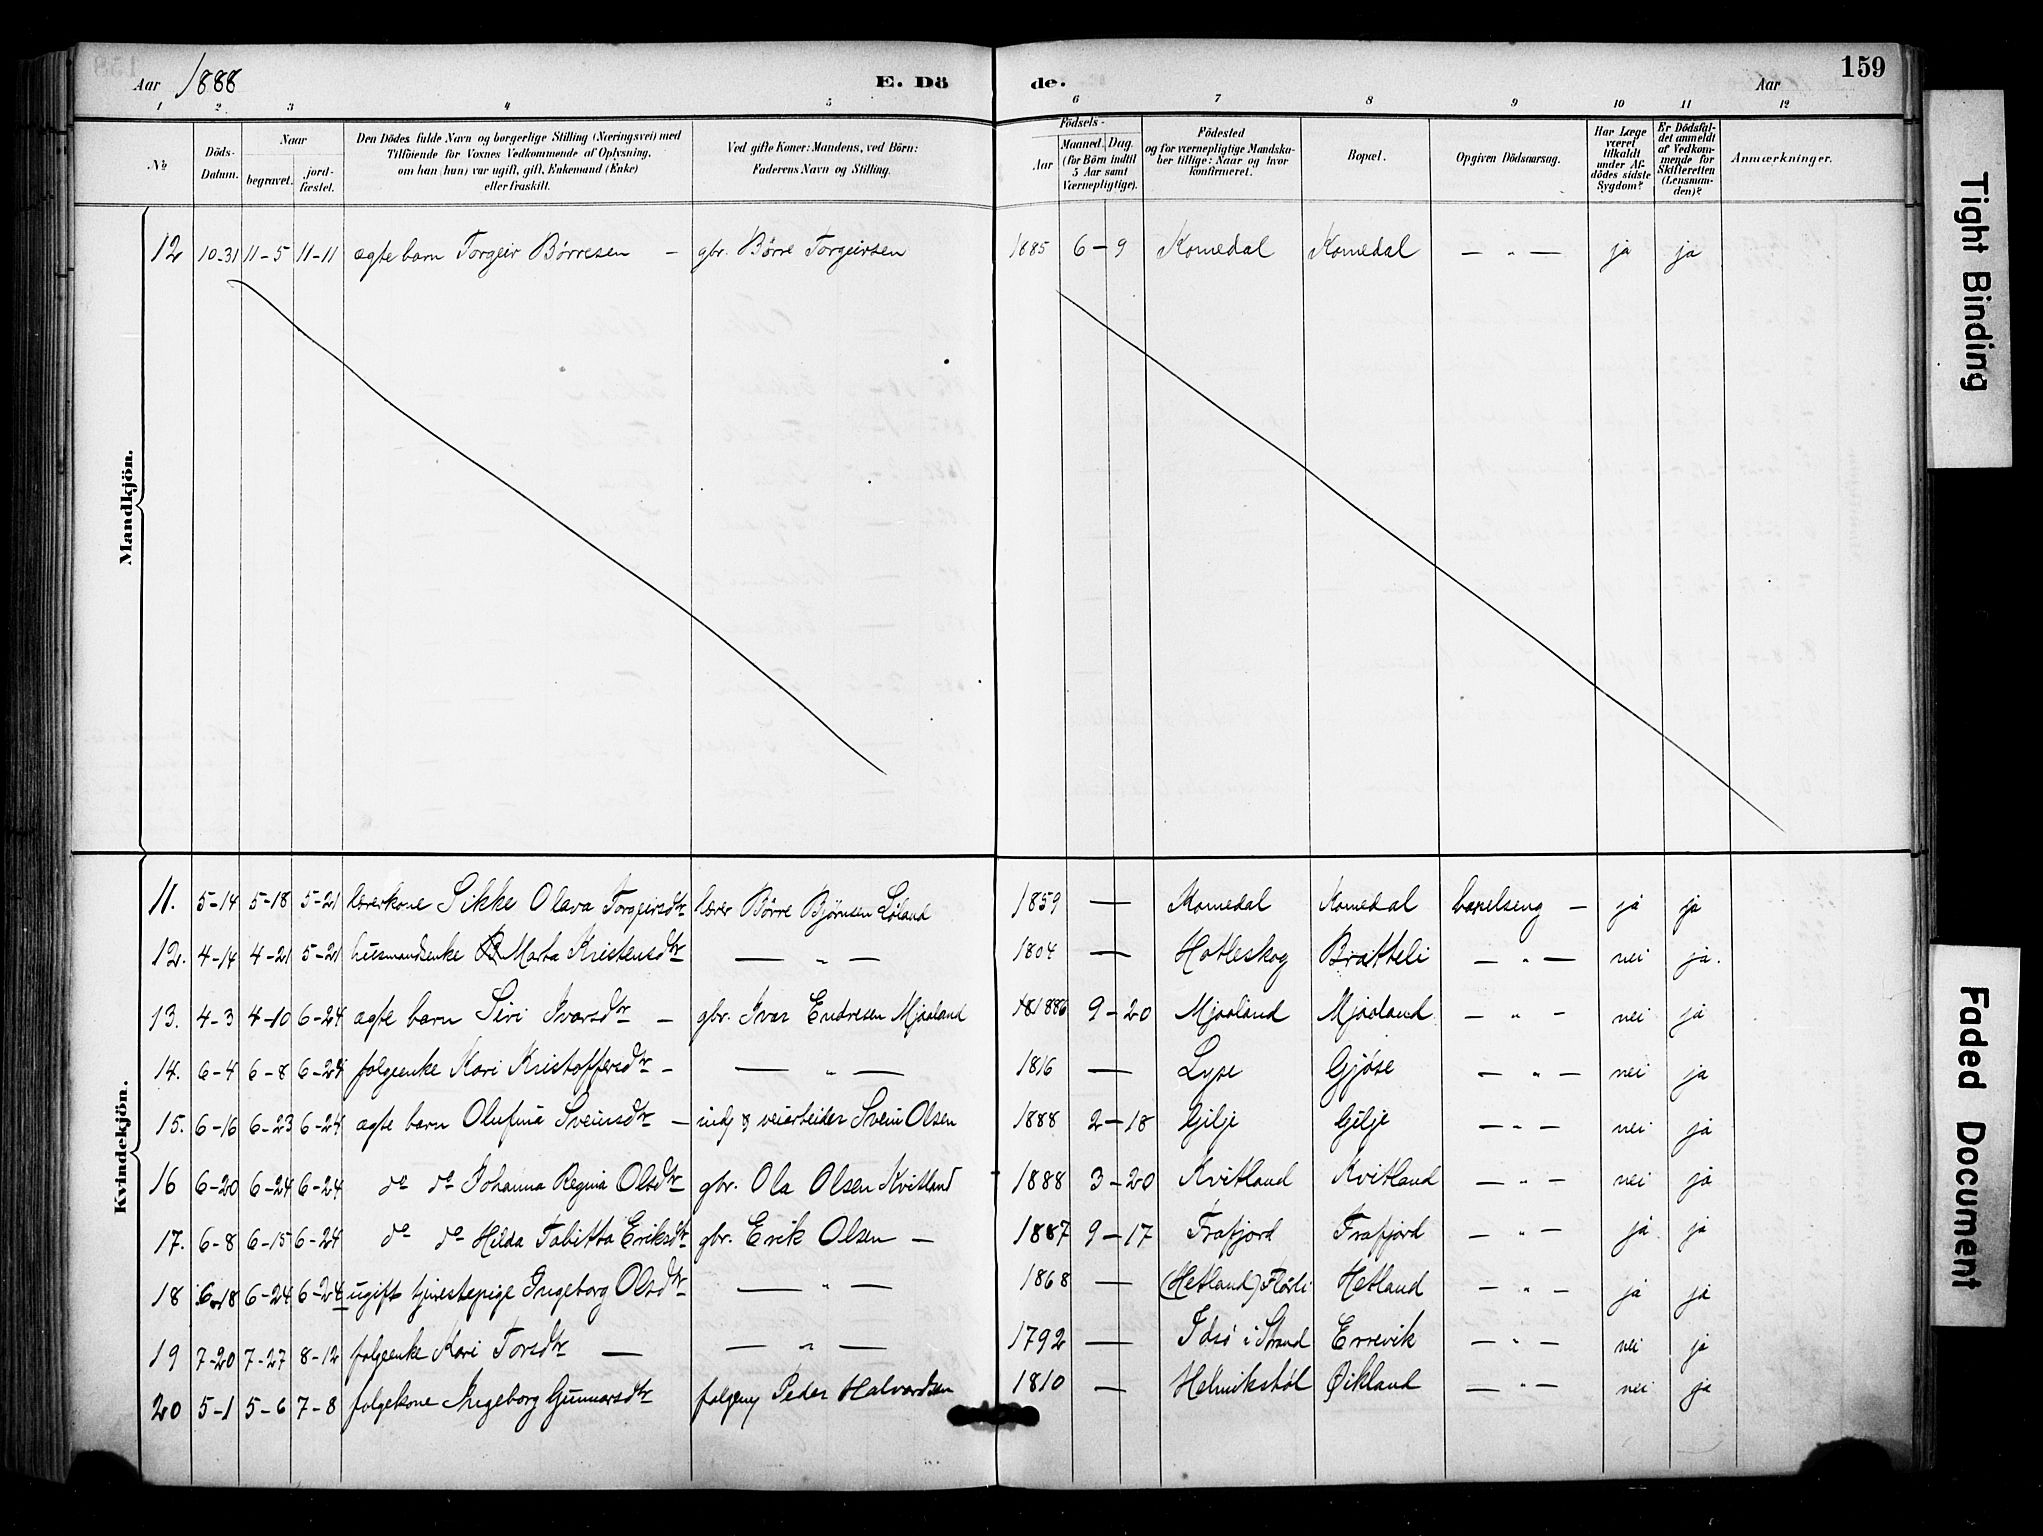 Aar 1888 E. Döde. Aar 159
1 2 3 4 5 6 7 8 9 10 11 12
No
Döds-Datum.
Naar begravet. jordfæstet.
Den Dödes fulde Navn og borgerlige Stilling (Næringsvei) med
Tilföiende for Voxnes Vedkommende af Oplysning,
om han (hun) var ugift, gift, Enkemand (Enke)
eller fraskilt.
Ved gifte Koner: Mandens, ved Börn:
Faderens Navn og Stilling.
Födsels-
Aar Maaned. Dag.
(for Börn indtil
5 Aar samt
Værnepligtige).
Födested
og for værnepligtige Mandskaber tillige: Naar og hvor
konfirmeret.
Bopæl.
Opgiven Dödsaarsag.
Har Læge
været
tilkaldt
under Afdödes sidste
Sygdom?
Er Dödsfaldet anmeldt
af Vedkommende for
Skifteretten
(Lensmanden)?
Anmærkninger.
Mandkjön.
12 10-31 11-5 11-11 ægte barn Torgeir Børresen — gbr. Børre Torgeirsen 1885 6-9 Komedal Komedal — " — ja ja
Kvindekjön.
11. 5-14 5-18 5-21 lærerkone Sikke Olava Torgeirsdtr lærer Børre Bjørnsen Løland 1859 — Komedal Komedal barselseng — ja ja
12. 4-14 4-21 5-21 husmandsenke Marta Kristensdtr — " — 1804 — Hatleskog Bratteli — " — nei ja.
13. 4-3 4-10 6-24 ægte barn Siri Ivarsdtr — gbr. Ivar Endresen Mjaaland 1886 9-20 Mjaaland Mjaaland — " — nei ja
14. 6-4 6-8 6-24 folgeenke Kari Kristoffersdtr — — " — 1816 — Lyse Gjøse — " — nei ja
15. 6-16 6-23 6-24 ægte barn Olufina Sveinsdtr — indj & veiarbeider Svein Olsen 1888 2-18 Gilje Gilje — " — nei ja
16 6-20 6-24 6-24 do do Johanna Regina Olsdtr gbr. Ola Olsen Kvitland 1888 3-20 Kvitland Kvitland — " — nei ja
17. 6-8 6-15 6-24 do do Hilda Tabitta Eriksdtr gbr. Erik Olsen — 1887 9-17 Frafjord Frafjord — " — ja ja
18 6-18 6-24 6-24 ugift tjenestepige Ingeborg Olsdtr — " — 1868 — (Hetland) Flørli Hetland — " — ja ja
19 7-20 7-27 8-12 folgeenke Kari Torsdtr — — " — 1792 — Idsø i Strand Errevik — " — nei ja
20 5-1 5-6 7-8 folgekone Ingeborg Gunnarsdtr folgem Peder Halvardsen 1810 — Helmikstøl Øikland — " — nei ja
Tight Binding
Faded Document